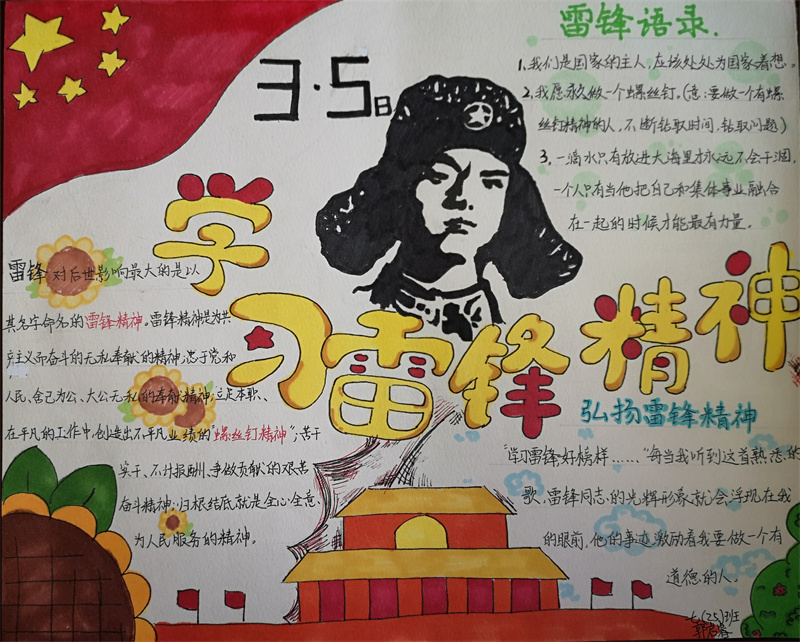 3·5日
学习雷锋精神
雷锋语录.
1、我们是国家的主人,应该处处为国家着想。
2、我愿永久做一个螺丝钉。(注:要做一个有螺
丝钉精神的人,不断钻取时间,钻取问题)
3、一滴水只有放进大海里才永远不会干涸,
一个人只有当他把自己和集体事业融合
在一起的时候才能最有力量。
雷锋对后世影响最大的是以
其名字命名的雷锋精神。雷锋精神是为共
产主义而奋斗的无私奉献的精神;忠于党和
人民、舍己为公、大公无私的奉献精神;立足本职、
在平凡的工作中,创造出不平凡业绩的"螺丝钉精神";苦干
实干、不计报酬、争做贡献的艰苦
奋斗精神;归根结底就是全心全意、
为人民服务的精神。
弘扬雷锋精神
"学习雷锋好榜样……"每当我听到这首熟悉的
歌,雷锋同志的光辉形象就会浮现在我
的眼前,他的事迹激励着我要做一个有
道德的人。
七(25)班